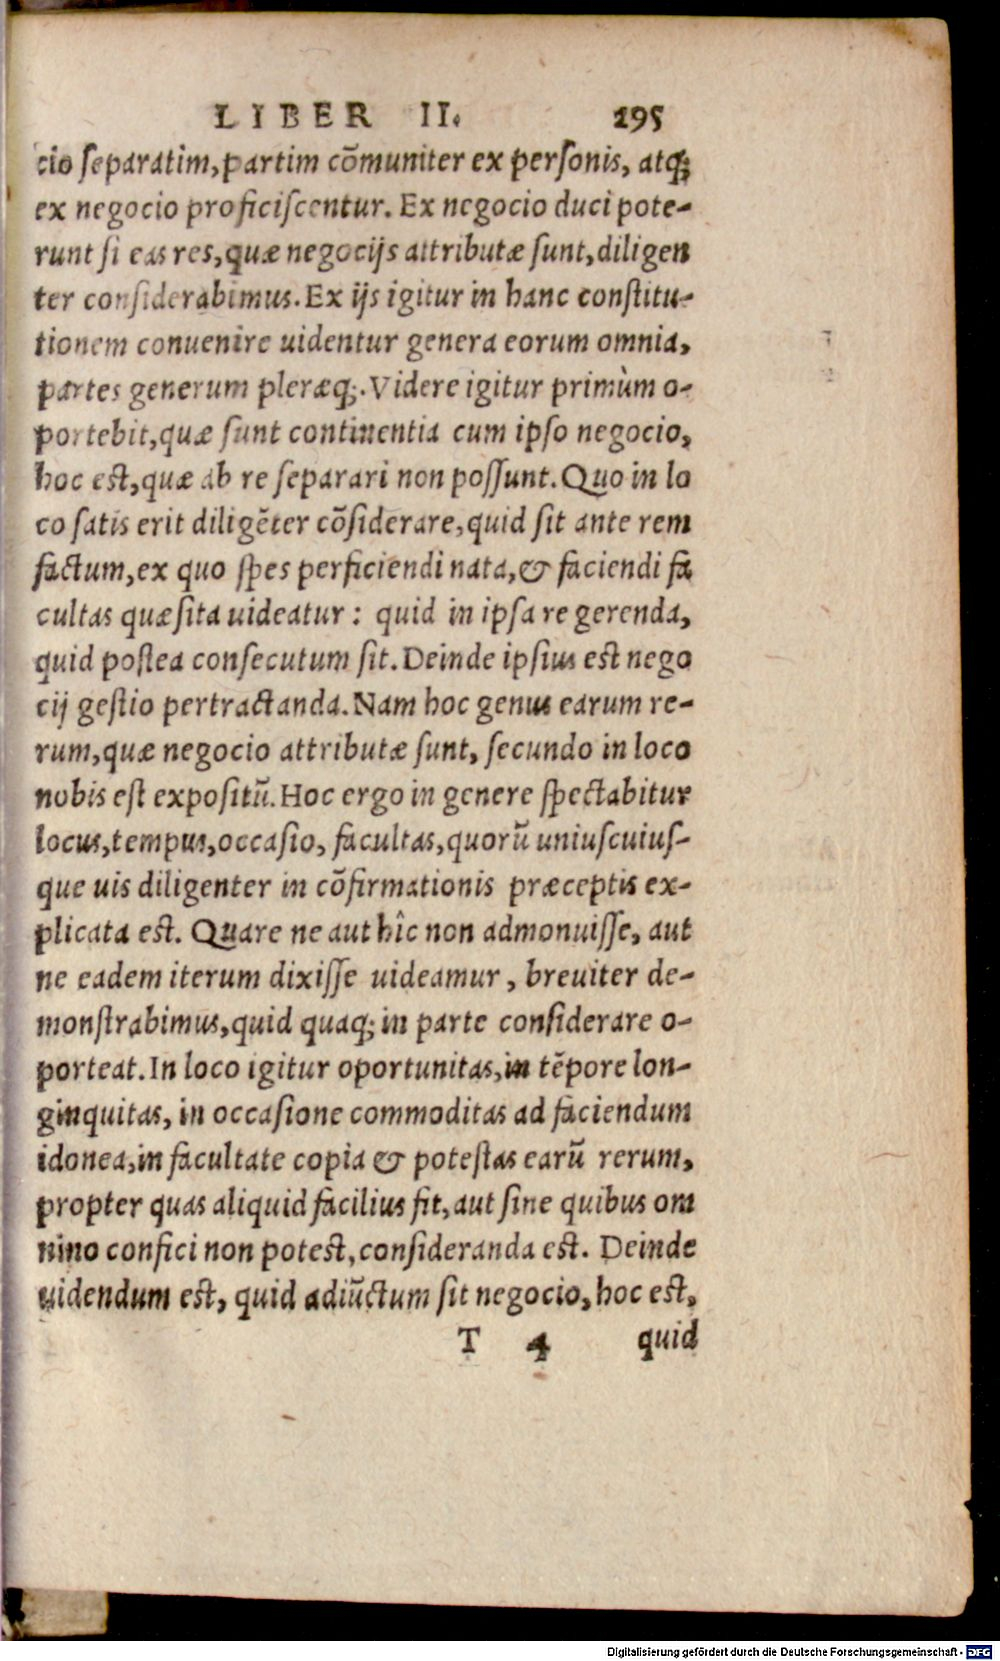 LIBER II. 295
cio separatim, partim cõmuniter ex personis, atq;
ex negocio proficiscentur. Ex negocio duci pote-
runt si eas res, quæ negocijs attributæ sunt, diligen
ter considerabimus. Ex ijs igitur in hanc constitu-
tionem conuenire uidentur genera eorum omnia,
partes generum pleræq;. Videre igitur primùm o-
portebit, quæ sunt continentia cum ipso negocio,
hoc est, quæ ab re separari non possunt. Quo in lo
co satis erit diligẽter cõsiderare, quid sit ante rem
factum, ex quo spes perficiendi nata, & faciendi fa
cultas quæsita uideatur: quid in ipsa re gerenda,
quid postea consecutum sit. Deinde ipsius est nego
cij gestio pertractanda. Nam hoc genus earum re-
rum, quæ negocio attributæ sunt, secundo in loco
nobis est expositũ. Hoc ergo in genere spectabitur
locus, tempus, occasio, facultas, quorũ uniuscuius-
que uis diligenter in cõfirmationis præceptis ex-
plicata est. Quare ne aut hîc non admonuisse, aut
ne eadem iterum dixisse uideamur, breuiter de-
monstrabimus, quid quaq; in parte considerare o-
porteat. In loco igitur oportunitas, in tẽpore lon-
ginquitas, in occasione commoditas ad faciendum
idonea, in facultate copia & potestas earũ rerum,
propter quas aliquid facilius fit, aut sine quibus om
nino confici non potest, consideranda est. Deinde
uidendum est, quid adiũctum sit negocio, hoc est,
T 4 quid
Digitalisierung gefördert durch die Deutsche Forschungsgemeinschaft - DFG